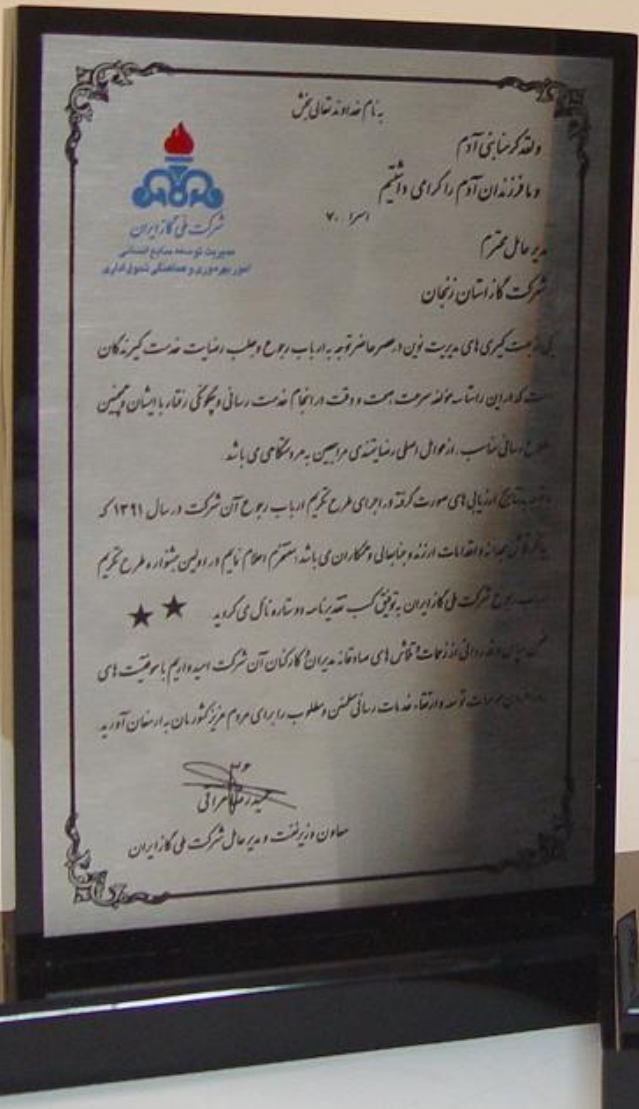 به نام خداوند تعالی بخش
ولقد کرمنا بنی آدم
و ما فرزندان آدم را گرامی داشتیم
اسرا ۷۰
شرکت ملی گاز ایران
مدیریت توسعه منابع انسانی
امور بهره‌وری و هماهنگی تحول اداری
مدیر عامل محترم
شرکت گاز استان زنجان
یکی از جهت گیری های مدیریت نوین در عصر حاضر توجه به ارباب رجوع و جلب رضایت خدمت گیرندگان
است که در این راستا سه مؤلفه سرعت، صحت و دقت در انجام خدمت رسانی و چگونگی رفتار با ایشان و همچنین
اطلاع رسانی مناسب، از عوامل اصلی رضایتمندی مراجعین به هر دستگاهی می باشد.
با توجه به نتایج ارزیابی های صورت گرفته در اجرای طرح تکریم ارباب رجوع آن شرکت در سال ۱۳۹۱ که
تلاش و اقدامات ارزنده جنابعالی و همکاران می باشد، مفتخرم اعلام نمایم در اولین جشنواره طرح تکریم
ارباب رجوع شرکت ملی گاز ایران به توفیق کسب تقدیرنامه دو ستاره نائل می گردید
ضمن سپاس و قدردانی از زحمات و تلاش های صادقانه مدیران و کارکنان آن شرکت امیدواریم با موفقیت های
موجبات توسعه و ارتقاء خدمات رسانی مطمئن و مطلوب را برای مردم عزیز کشورمان به ارمغان آورید.
حمیدرضا عراقی
معاون وزیر نفت و مدیر عامل شرکت ملی گاز ایران